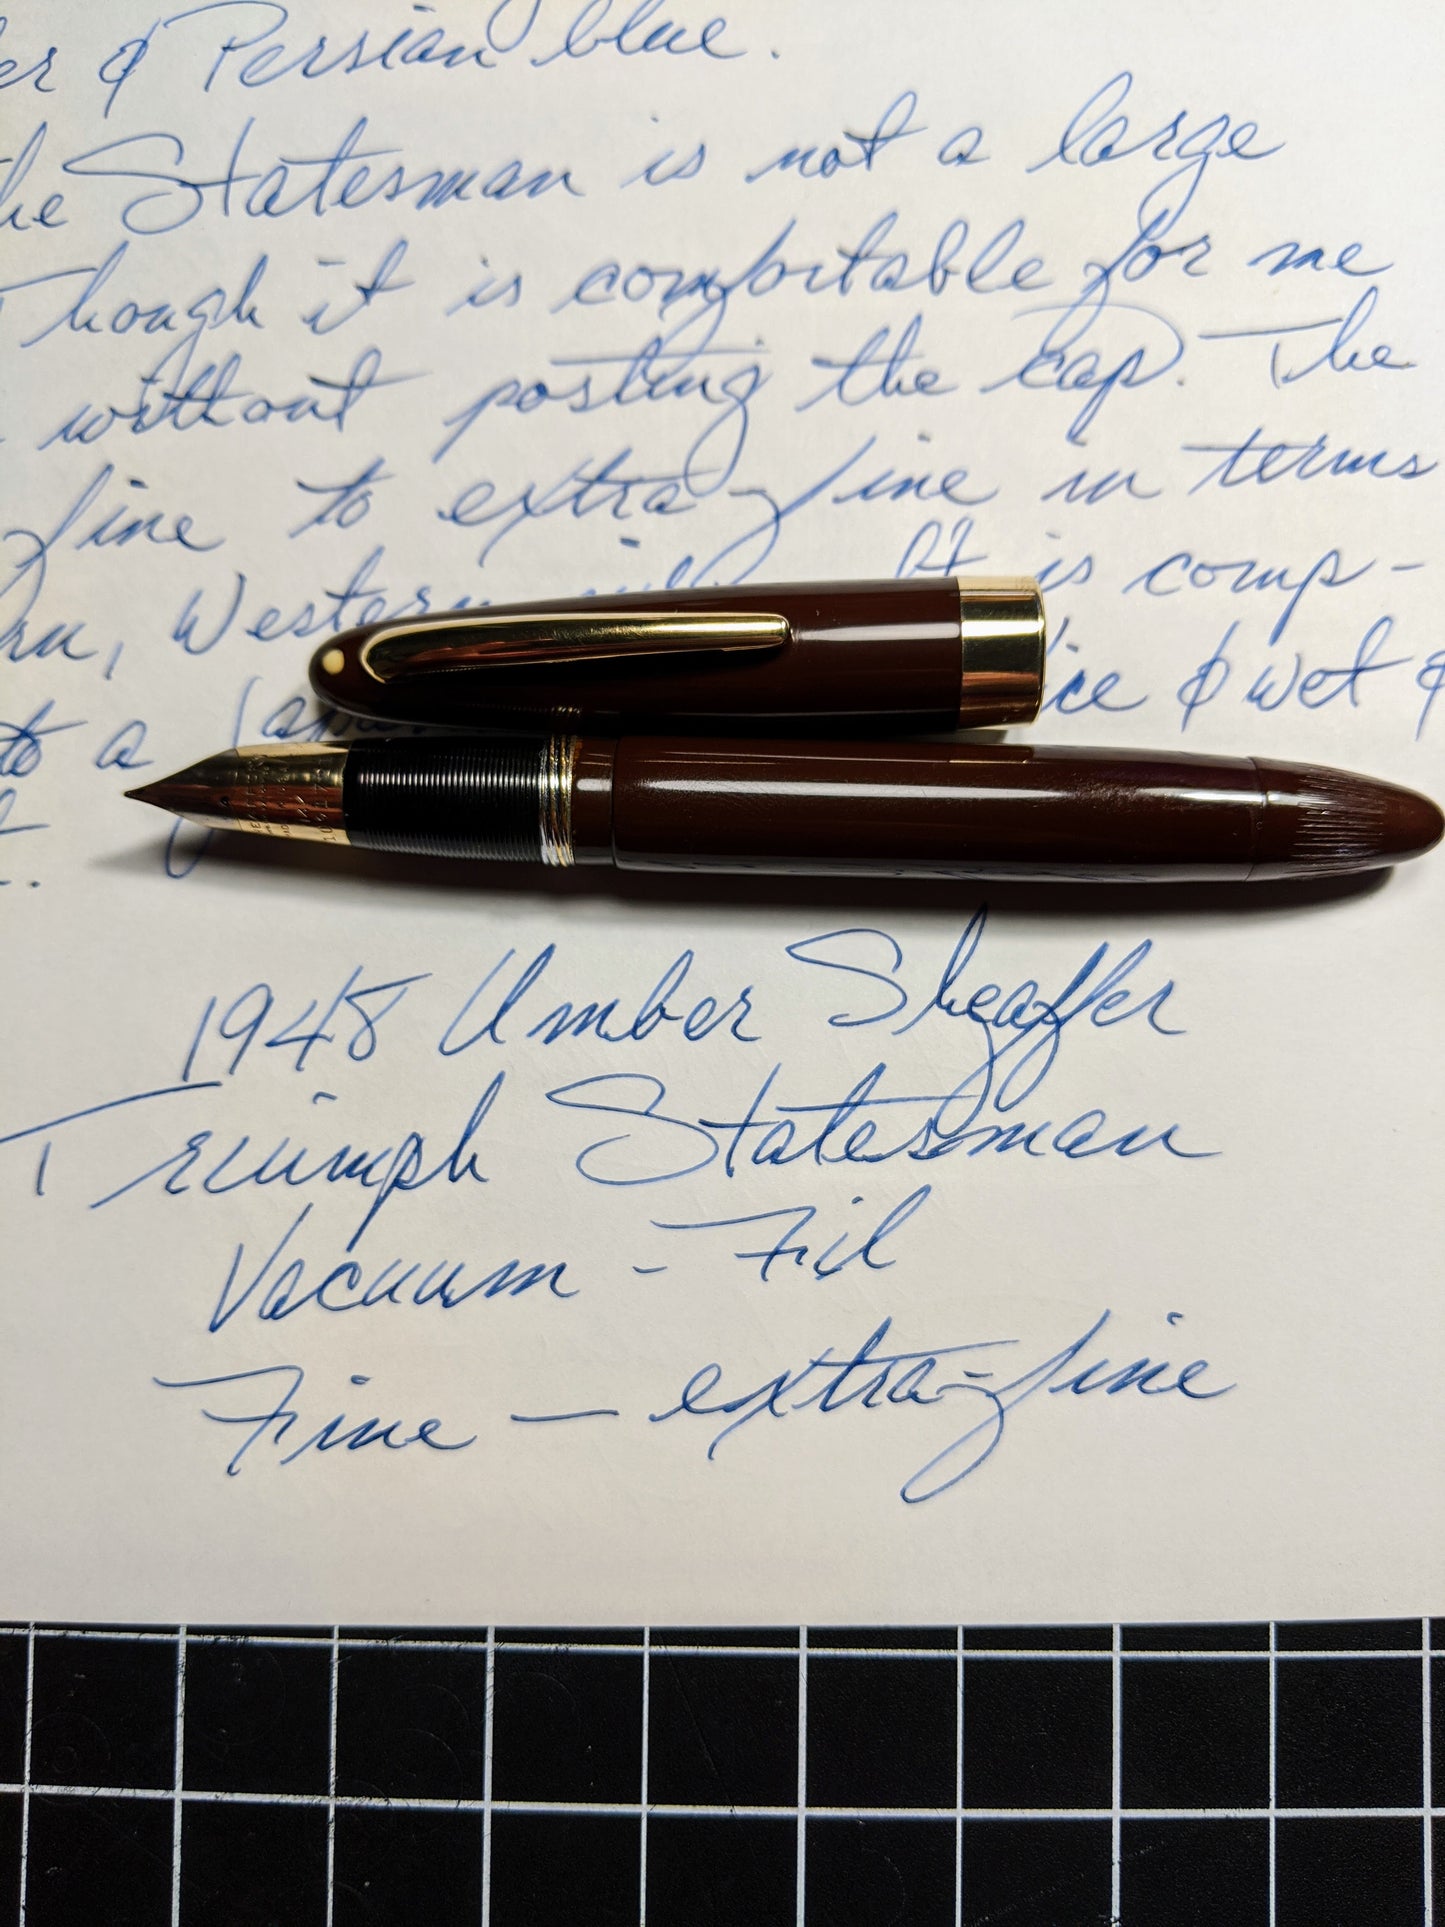 er & Persian blue.
he Statesman is not a large
Though it is comfortable for me
without posting the cap. The
fine to extra-fine in terms
rn, Western It is comp-
to a ice & wet &
1948 Umber Sheaffer
Triumph Statesman
Vacuum-Fil
Fine — extra-fine